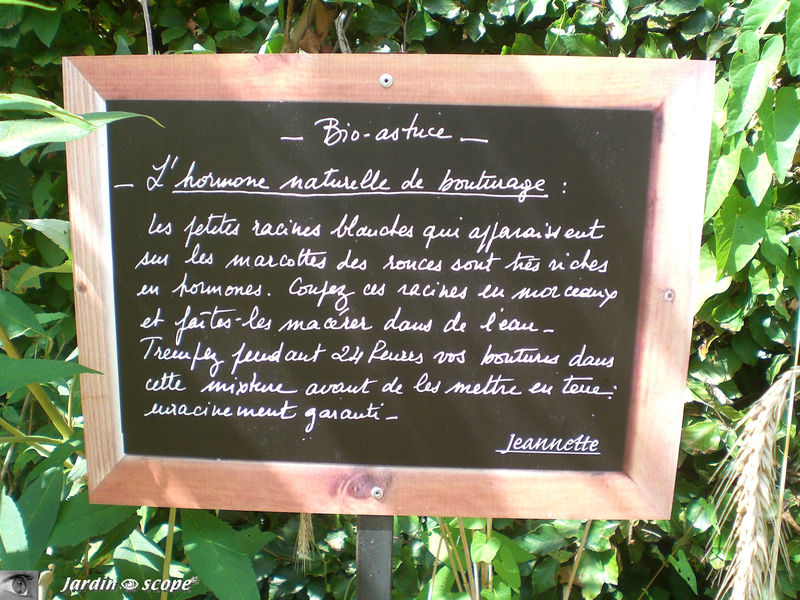 – Bio-astuce –
– L'hormone naturelle de bouturage :
Les petites racines blanches qui apparaissent
sur les marcottes des ronces sont très riches
en hormones. Coupez ces racines en morceaux
et faîtes-les macérer dans de l'eau –
Trempez pendant 24 heures vos boutures dans
cette mixture avant de les mettre en terre :
enracinement garanti –
Jeannette
Jardin scope©